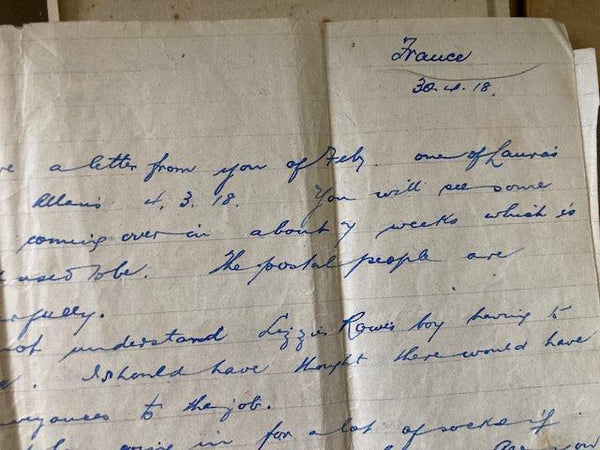 France
30.4.18.
a letter from you of Feb. one of Laura's
Allan's 4.3.18. You will see some
coming over in about 7 weeks which is
used to be. The postal people are
fully.
not understand Lizzie Rowe's boy having to
. I should have thought there would have
to the job.
in for a lot of socks if
you